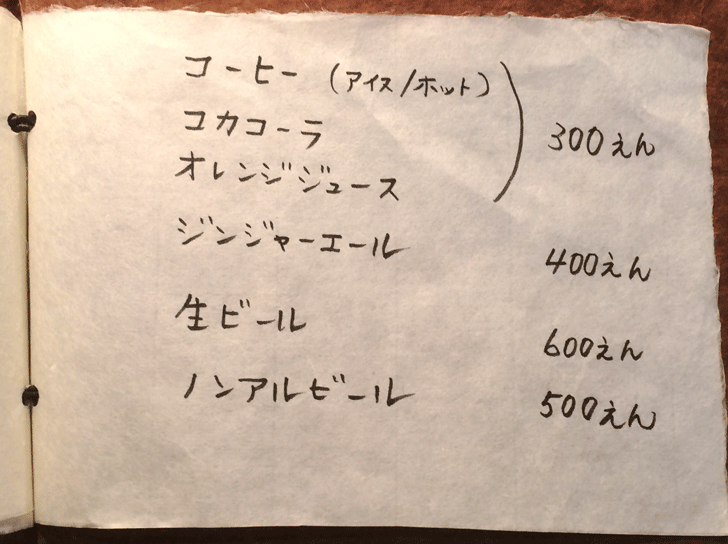 コーヒー (アイス/ホット)
コカコーラ
オレンジジュース
300えん
ジンジャーエール 400えん
生ビール 600えん
ノンアルビール 500えん